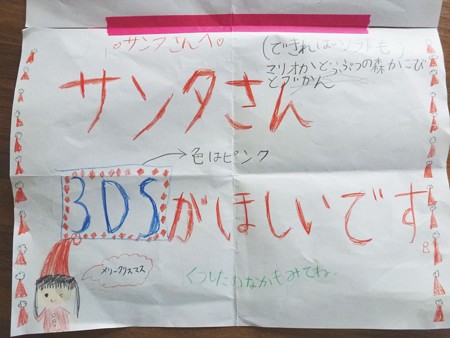 サンタさんへ
(できればソフトも)
マリオかどうぶつの森かこびとづかん
サンタさん
色はピンク
3DSがほしいです
メリークリスマス
くつしたのなかもみてね。